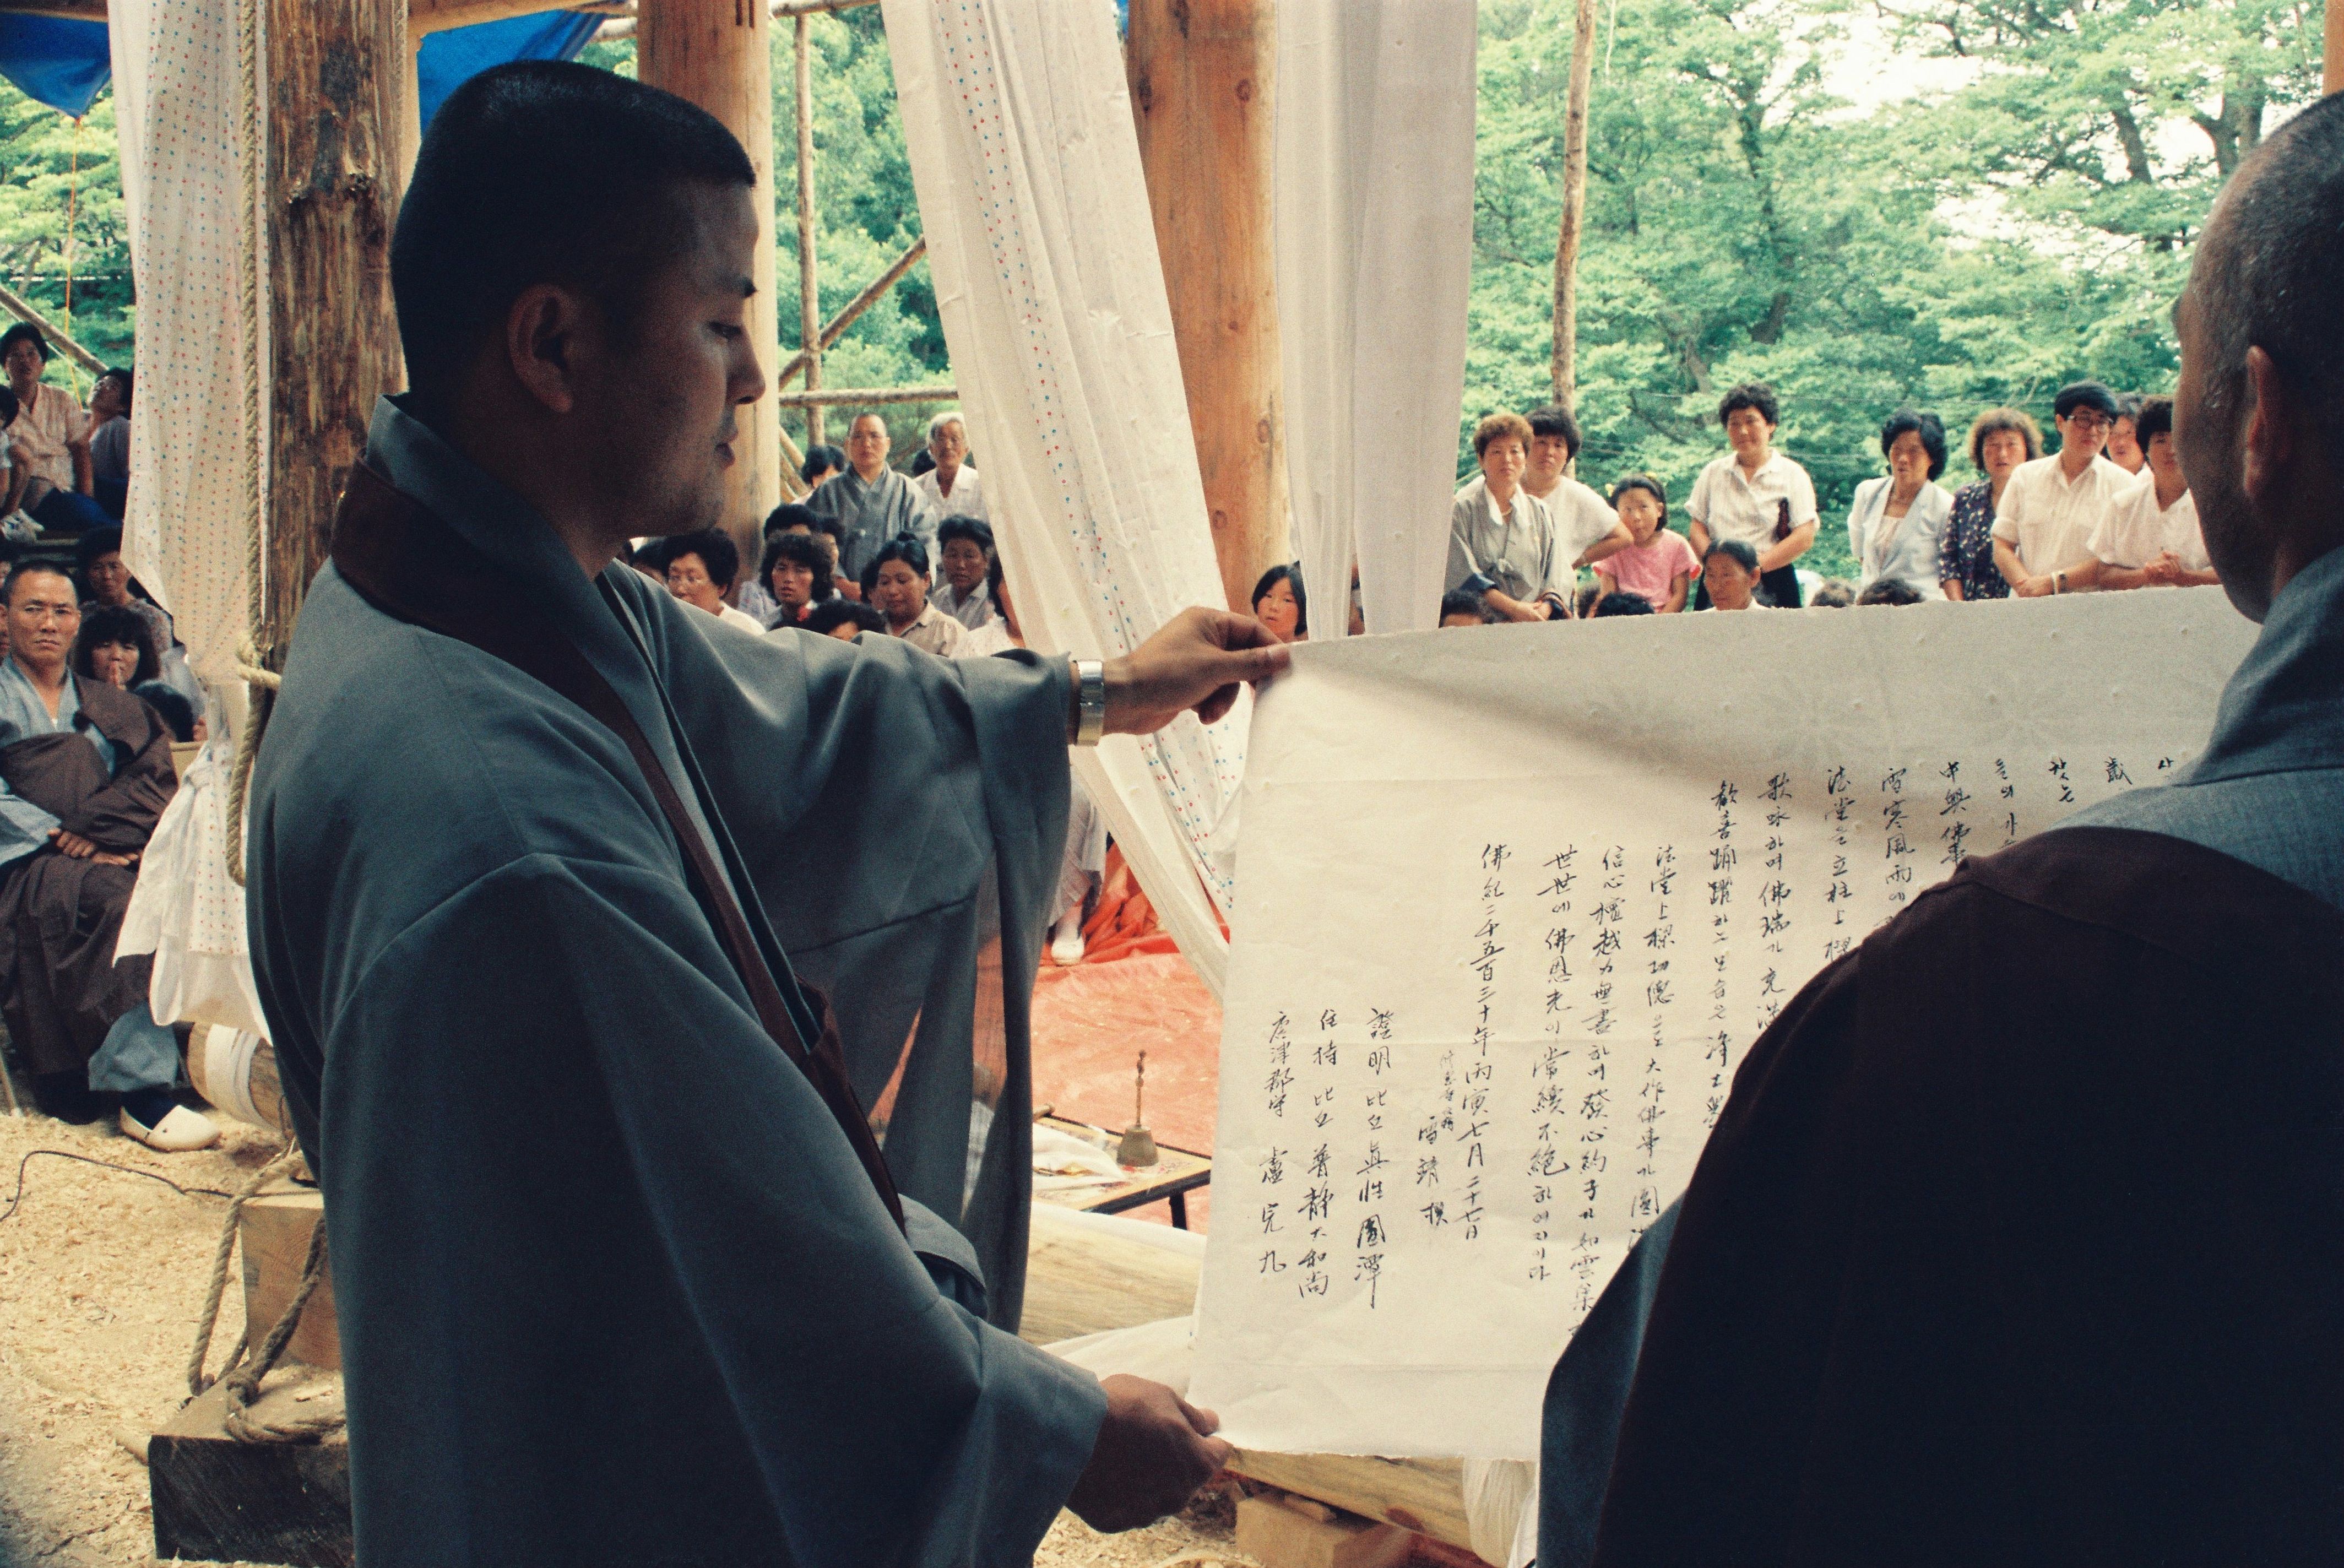 사
歲
찾는
들의 가
中興佛事
雪寒風雨에
法堂을 立柱上樑
歌咏하며 佛瑞가 充滿
歡喜踊躍하는 모습은 淨土
法堂上樑功德으로 大作佛事가 圓
信心檀越力無盡하며 發心納子가 如雲集
世世에 佛恩光이 常續不絶하여지이다
佛紀二千五百三十年丙寅七月二十七日
雪靖 撰
證明 比丘 眞性 圓潭
住持 比丘 普靜大和尚
唐津郡守 盧完九